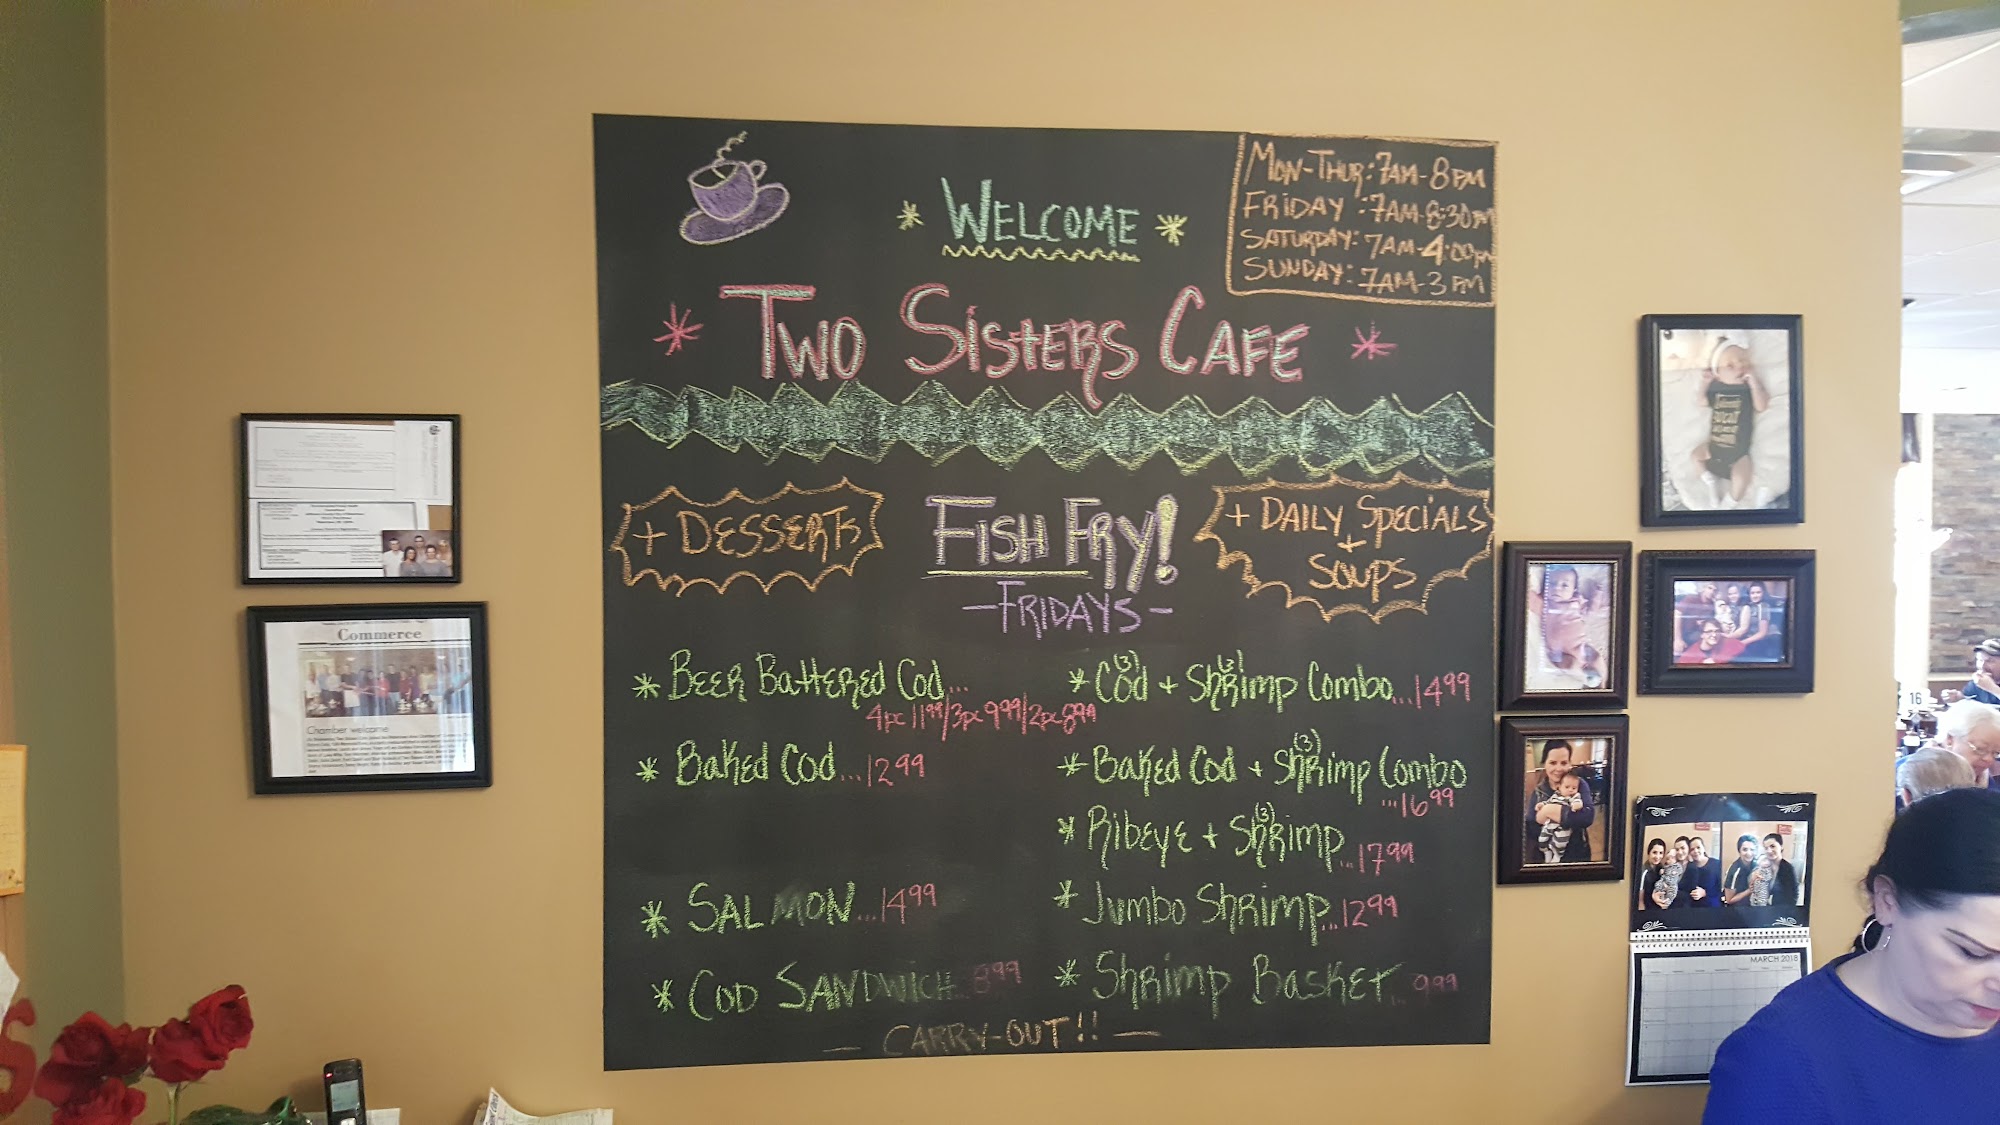 WELCOME
TWO SISTERS CAFE
MON-THUR: 7AM-8PM
FRIDAY: 7AM-8:30PM
SATURDAY: 7AM-4:00PM
SUNDAY: 7AM-3PM
+ DESSERTS
FISH FRY!
-FRIDAYS-
+ DAILY SPECIALS
+
SOUPS
* BEER BATTERED COD...
4pc 11⁹⁹/3pc 9⁹⁹/2pc 8⁹⁹
* BAKED COD...12⁹⁹
* SALMON...14⁹⁹
* COD SANDWICH...8⁹⁹
* COD (3) + SHRIMP (3) COMBO...14⁹⁹
* BAKED COD + SHRIMP (3) COMBO
...16⁹⁹
* RIBEYE + SHRIMP (3)...17⁹⁹
* JUMBO SHRIMP...12⁹⁹
* SHRIMP BASKET...9⁹⁹
- CARRY-OUT!! -
Commerce
Chamber welcome
MARCH 2018
16